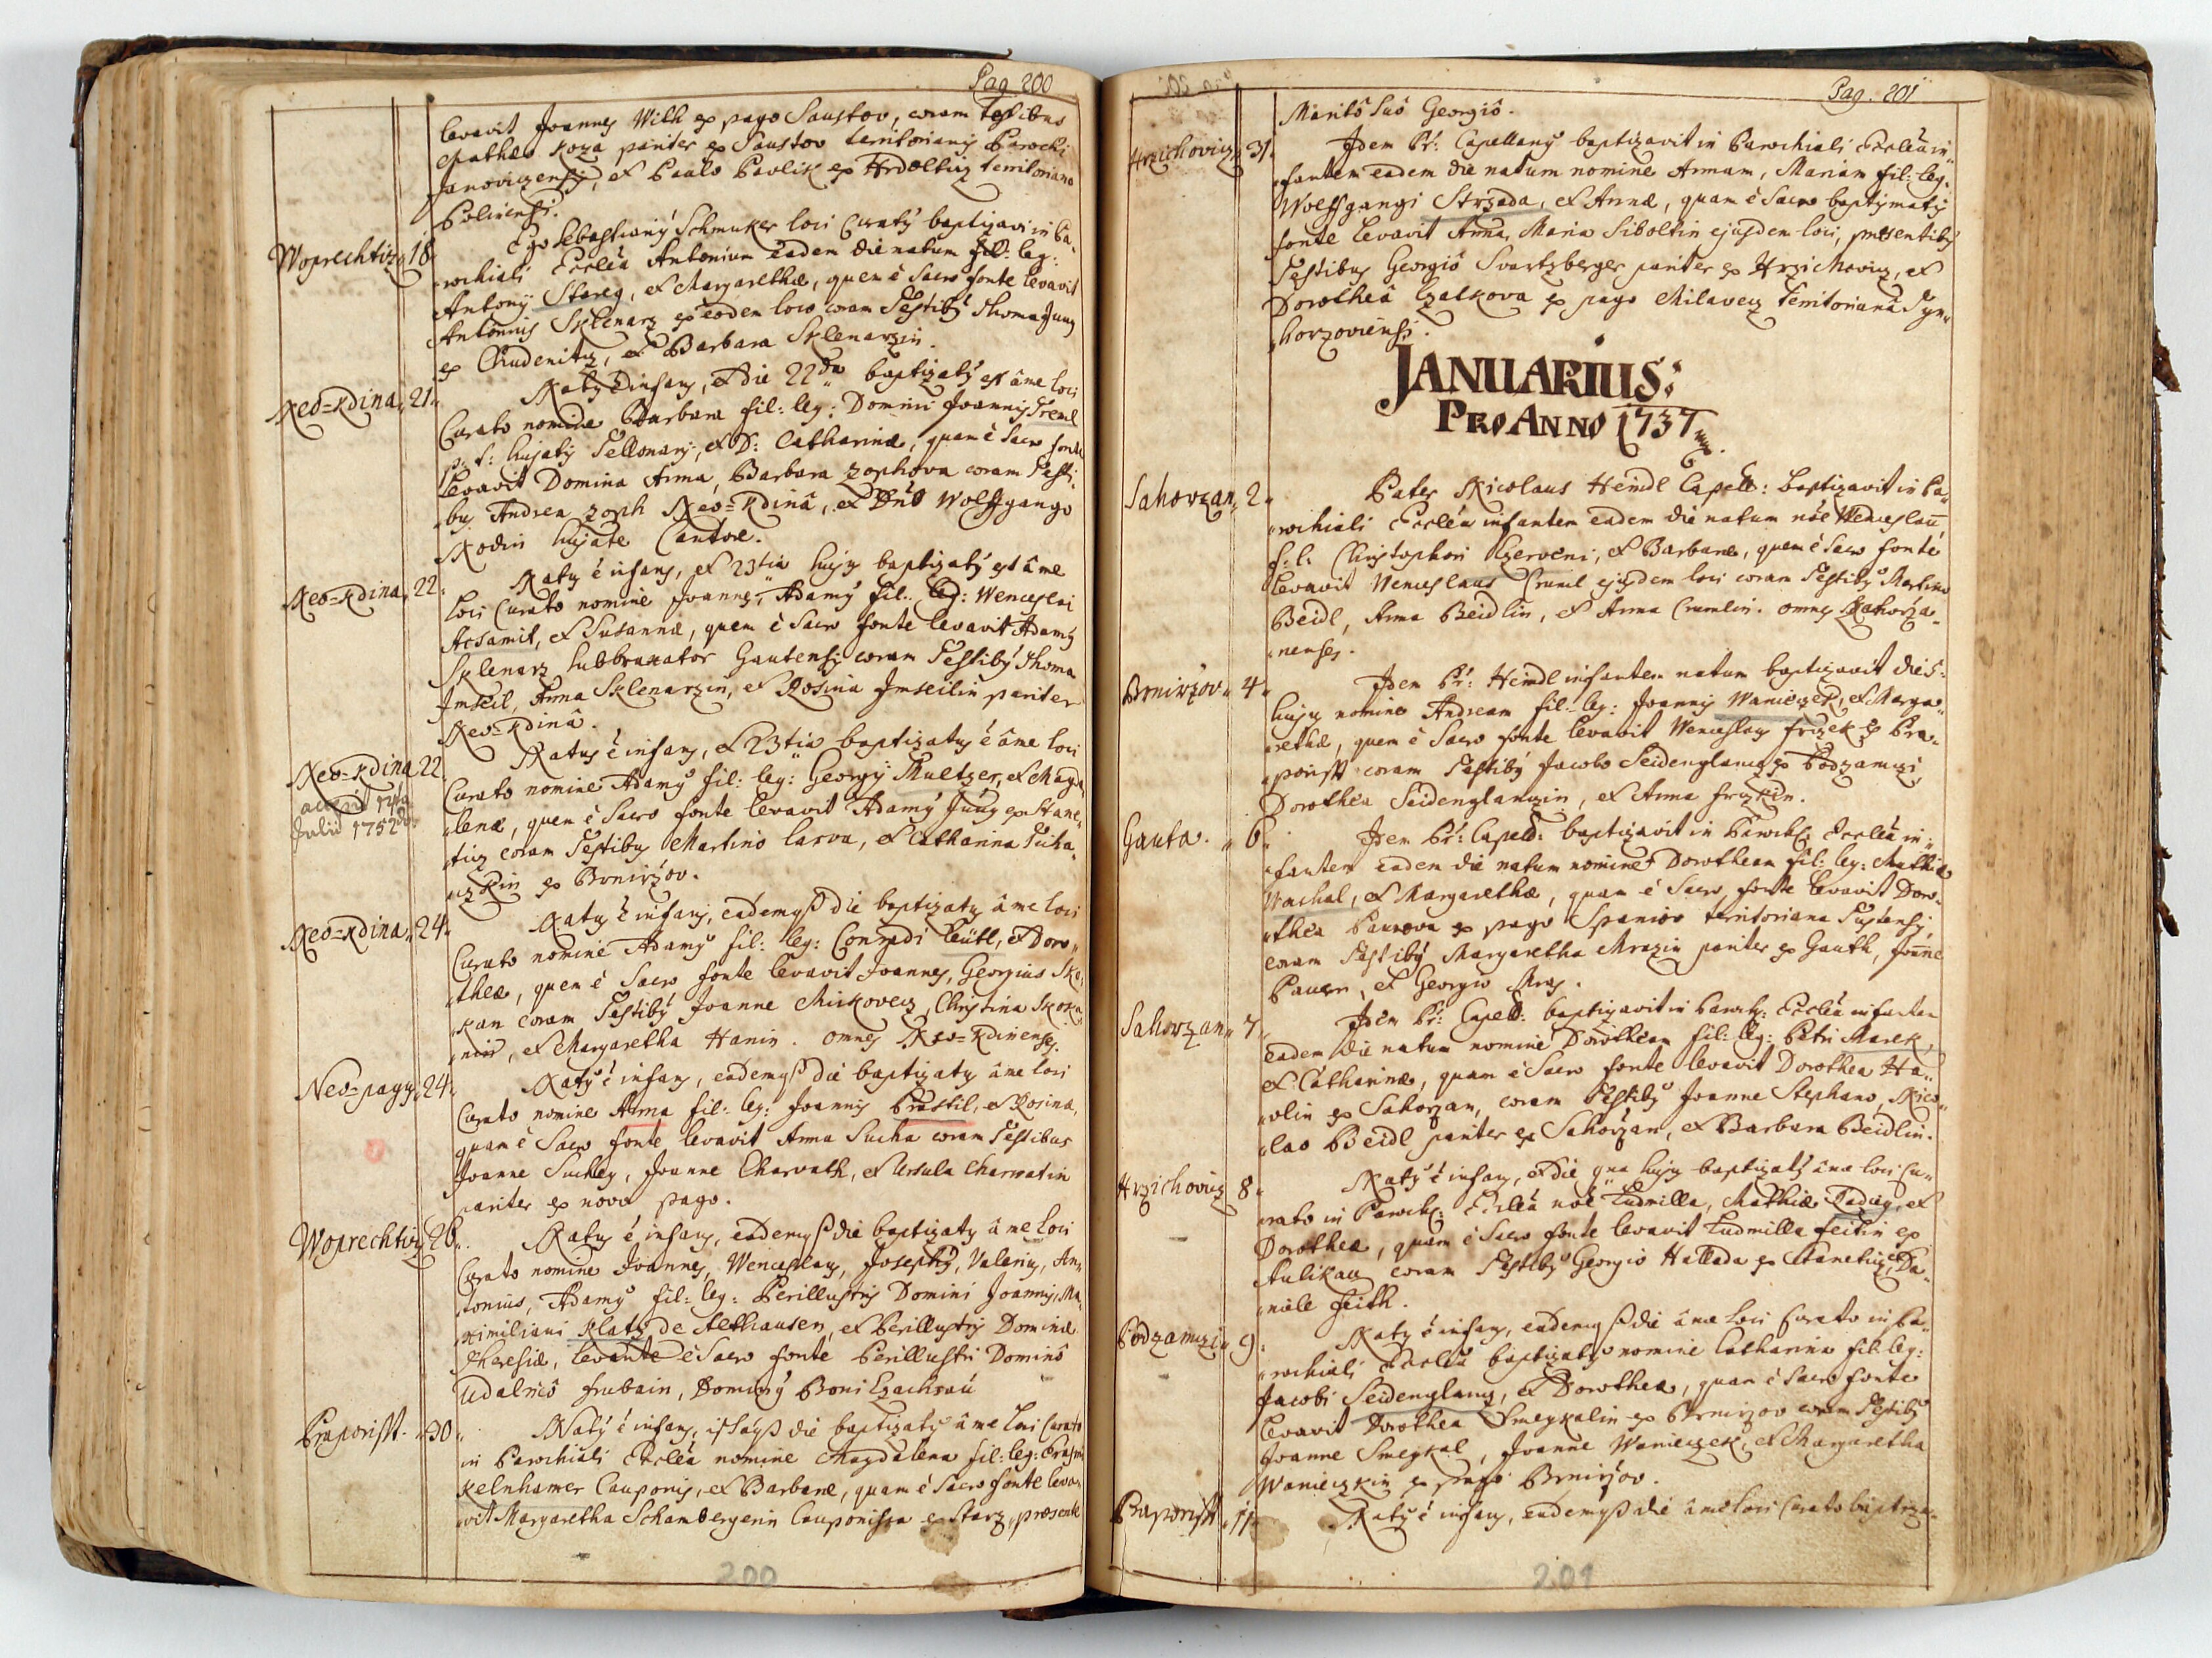 Pag. 200
levavit Joannes Wilh ex pago Saustov, coram testibus
Mathæo Koza pariter ex Saustov territorianis Parochi
Janoviczensis, et Paulo Pavlik ex Hrdoltiz territoriano
Polinensi.
Woprechtiz 18 Ego Sebastianus Schmuker loci Curatus baptizavi in Pa-
rochiali Ecclêa Antonium eadem die natum fil: leg:
Antonij Stareg, et Margarethæ, quem è Sacro fonte levavit
Antonius Sklenarz ex eodem loco coram Testibus Thoma Jung
ex Chudenitz, et Barbara Sklenarzin.
Neo=Kdina 21 Natus è infans, et die 22da baptizatus est â me loci
Curato nomine Barbara fil: leg: Domini Joannis Treml
p. t: hujatis Tellonarij, et D: Catharinæ, quam è Sacro fonte
levavit Domina Anna, Barbara Zophova coram Testi-
bus Andrea Zoph Neo=Kdinâ, et Dnô Wolffgango
Modin hujate Cantore.
Neo=Kdina 22 Natus è infans, et 23tia hujus baptizatus est â me
loci Curato nomine Joannes, Adamus fil: leg: Wenceslai
Acsamit, et Susannæ, quem è Sacro fonte levavit Adamus
Sklenarz subbraxator Gautensis coram Testibus Thoma
Imseil, Anna Sklenarzin, et Rosina Imseilin pariter
Neo=Kdinâ.
Neo=Kdina 22 Natus è infans, et 23tia baptizatus è â me loci
Curato nomine Adamus fil: leg: Georgij Multzer, et Magda-
Julii 1752
lenæ, quem è Sacro fonte levavit Adamus Jung ex Stane-
tiz coram Testibus Martino Carva, et Catharina Ticha-
czkin ex Brnirzov.
Neo=Kdina 24 Natus è infans, eademqß die baptizatus â me loci
Curato nomine Adamus fil: leg: Conradi Leütl, et Doro-
theæ, quem è Sacro fonte levavit Joannes, Georgius Sko-
kan coram Testibus Joanne Mirkovecz, Christina Skoka-
nin, et Margaretha Hanin. omnes Neo=Kdinenses.
Neo=pagus 24 Natus è infans, eademqß die baptizatus â me loci
Curato nomine Anna fil: leg: Joannis Prastil, et Rosina,
quam è Sacro fonte levavit Anna Sucha coram Testibus
Joanne Suchey, Joanne Charvath, et Ursula Charvatin
pariter ex novo pago.
Woprechtiz 26 Natus è infans, eademqß die baptizatus â me loci
Curato nomine Joannes, Wenceslaus, Josephus, Valerius, An-
tonius, Adamus fil: leg: Perillustris Domini Joannis, Ma-
ximiliani Klatz de Althausen, et Perillustris Dominæ
Theresiæ, levante è Sacro fonte Perillustri Dominô
Udalricô Frubain, Dominus Boni Czachrau
Praporisst. 30 Natus è infans, ipsâqß die baptizatus â me loci Curato
in Parochiali Ecclêa nomine Magdalena fil: leg: Erasmi
Kelnhamer Cauponis, et Barbaræ, quam è Sacro fonte leva-
vit Margaretha Schambergerin Cauponissa ex Starz, præsente
200
Pag. 201
Maritô Suô Georgiô.
Hrzichovicz 31 Idem Pr: Capellanus baptizavit in Parochiali Ecclêa in-
fantem eadem die natum nomine Annam, Mariam fil: leg.
Wolffgangi Strzada, et Annæ, quam è Sacro baptysmatis
fonte levavit Anna, Maria Siboltin ejusdem loci, præsentibus
Testibus Georgiô Svartzberger pariter ex Hrzichovicz, et
Dorotheâ Czalkova ex pago Milavecz Territorianâ Tyn-
horzoviensi.
JANUARIUS:
PRO ANNO 1737.
Sahorzan 2 Pater Nicolaus Heindl Capell: baptizavit in Pa-
rochiali Ecclêa infantem eadem die natum nôe Wenceslaū
f: l: Christophori Czerveni, et Barbaræ, quem è Sacro fonte
levavit Wenceslaus Cruml ejusdem loci coram Testibus Martino
Beidl, Anna Beidlin, et Anna Crumlin. omnes Zahorza-
nenses.
Brnirzov 4 Idem Pr: Heindl infantem natum baptizavit die 5:
hujus nomine Andream fil: leg: Joannis Wanieczek, et Marga-
rethæ, quem è Sacro fonte levavit Wenceslaus Friczek ex Pra-
porisst coram Testibus Jacobo Seidenglantz ex Podzamczi,
Dorothea Seidenglanczin, et Anna Friczkin.
Gauta. 6 Idem Pr: Capell: baptizavit in Paroch: Ecclêa in-
fantem eadem die natum nomine Dorotheam fil: leg: Mathiæ
Wachal, et Margarethæ, quam è Sacro fonte levavit Doro-
thea Paurova ex pago Spaniov territoriana Tustensi,
coram Testibus Margaretha Mrazin pariter ex Gauth, Joane
Pauer, et Georgio Mraz.
Sahorzan 7 Idem Pr: Capell: baptizavit in Paroch: Ecclêa infantem
eadem die natum nomine Dorotheam fil: leg: Petri Marek,
et Catharinæ, quam è Sacro fonte levavit Dorothea Ha-
vlin ex Sahorzan, coram Testibus Joanne Stephano, Nico-
lao Beidl pariter ex Sahorzan, et Barbara Beidlin.
Hrzichovicz 8 Natus è infans, et die 9na hujus baptizatus â me loci Cu-
rato in Paroch: Ecclêa nôe Ludmilla, Mathiæ Tadieg, et
Dorotheæ, quam è Sacro fonte levavit Ludmilla Feitin ex
Aulikau coram Testibus Georgio Hallada ex Stanetiz, Da-
niele Feith.
Podzamczi 9 Natus è infans, eademqß die â me loci Curato in Pa-
rochiali Ecclêa baptizatus nomine Catharina fil: leg:
Jacobi Seidenglantz, et Dorotheæ, quam è Sacro fonte
levavit Dorothea Smeykalin ex Brnirzov coram Testibus
Joanne Smeykal, Joanne Wanieczek, et Margaretha
Wanieczkin ex pago Brnirzov.
Praporisst 11 Natus è infans, eademqß die â me loci Curato baptiza-
201